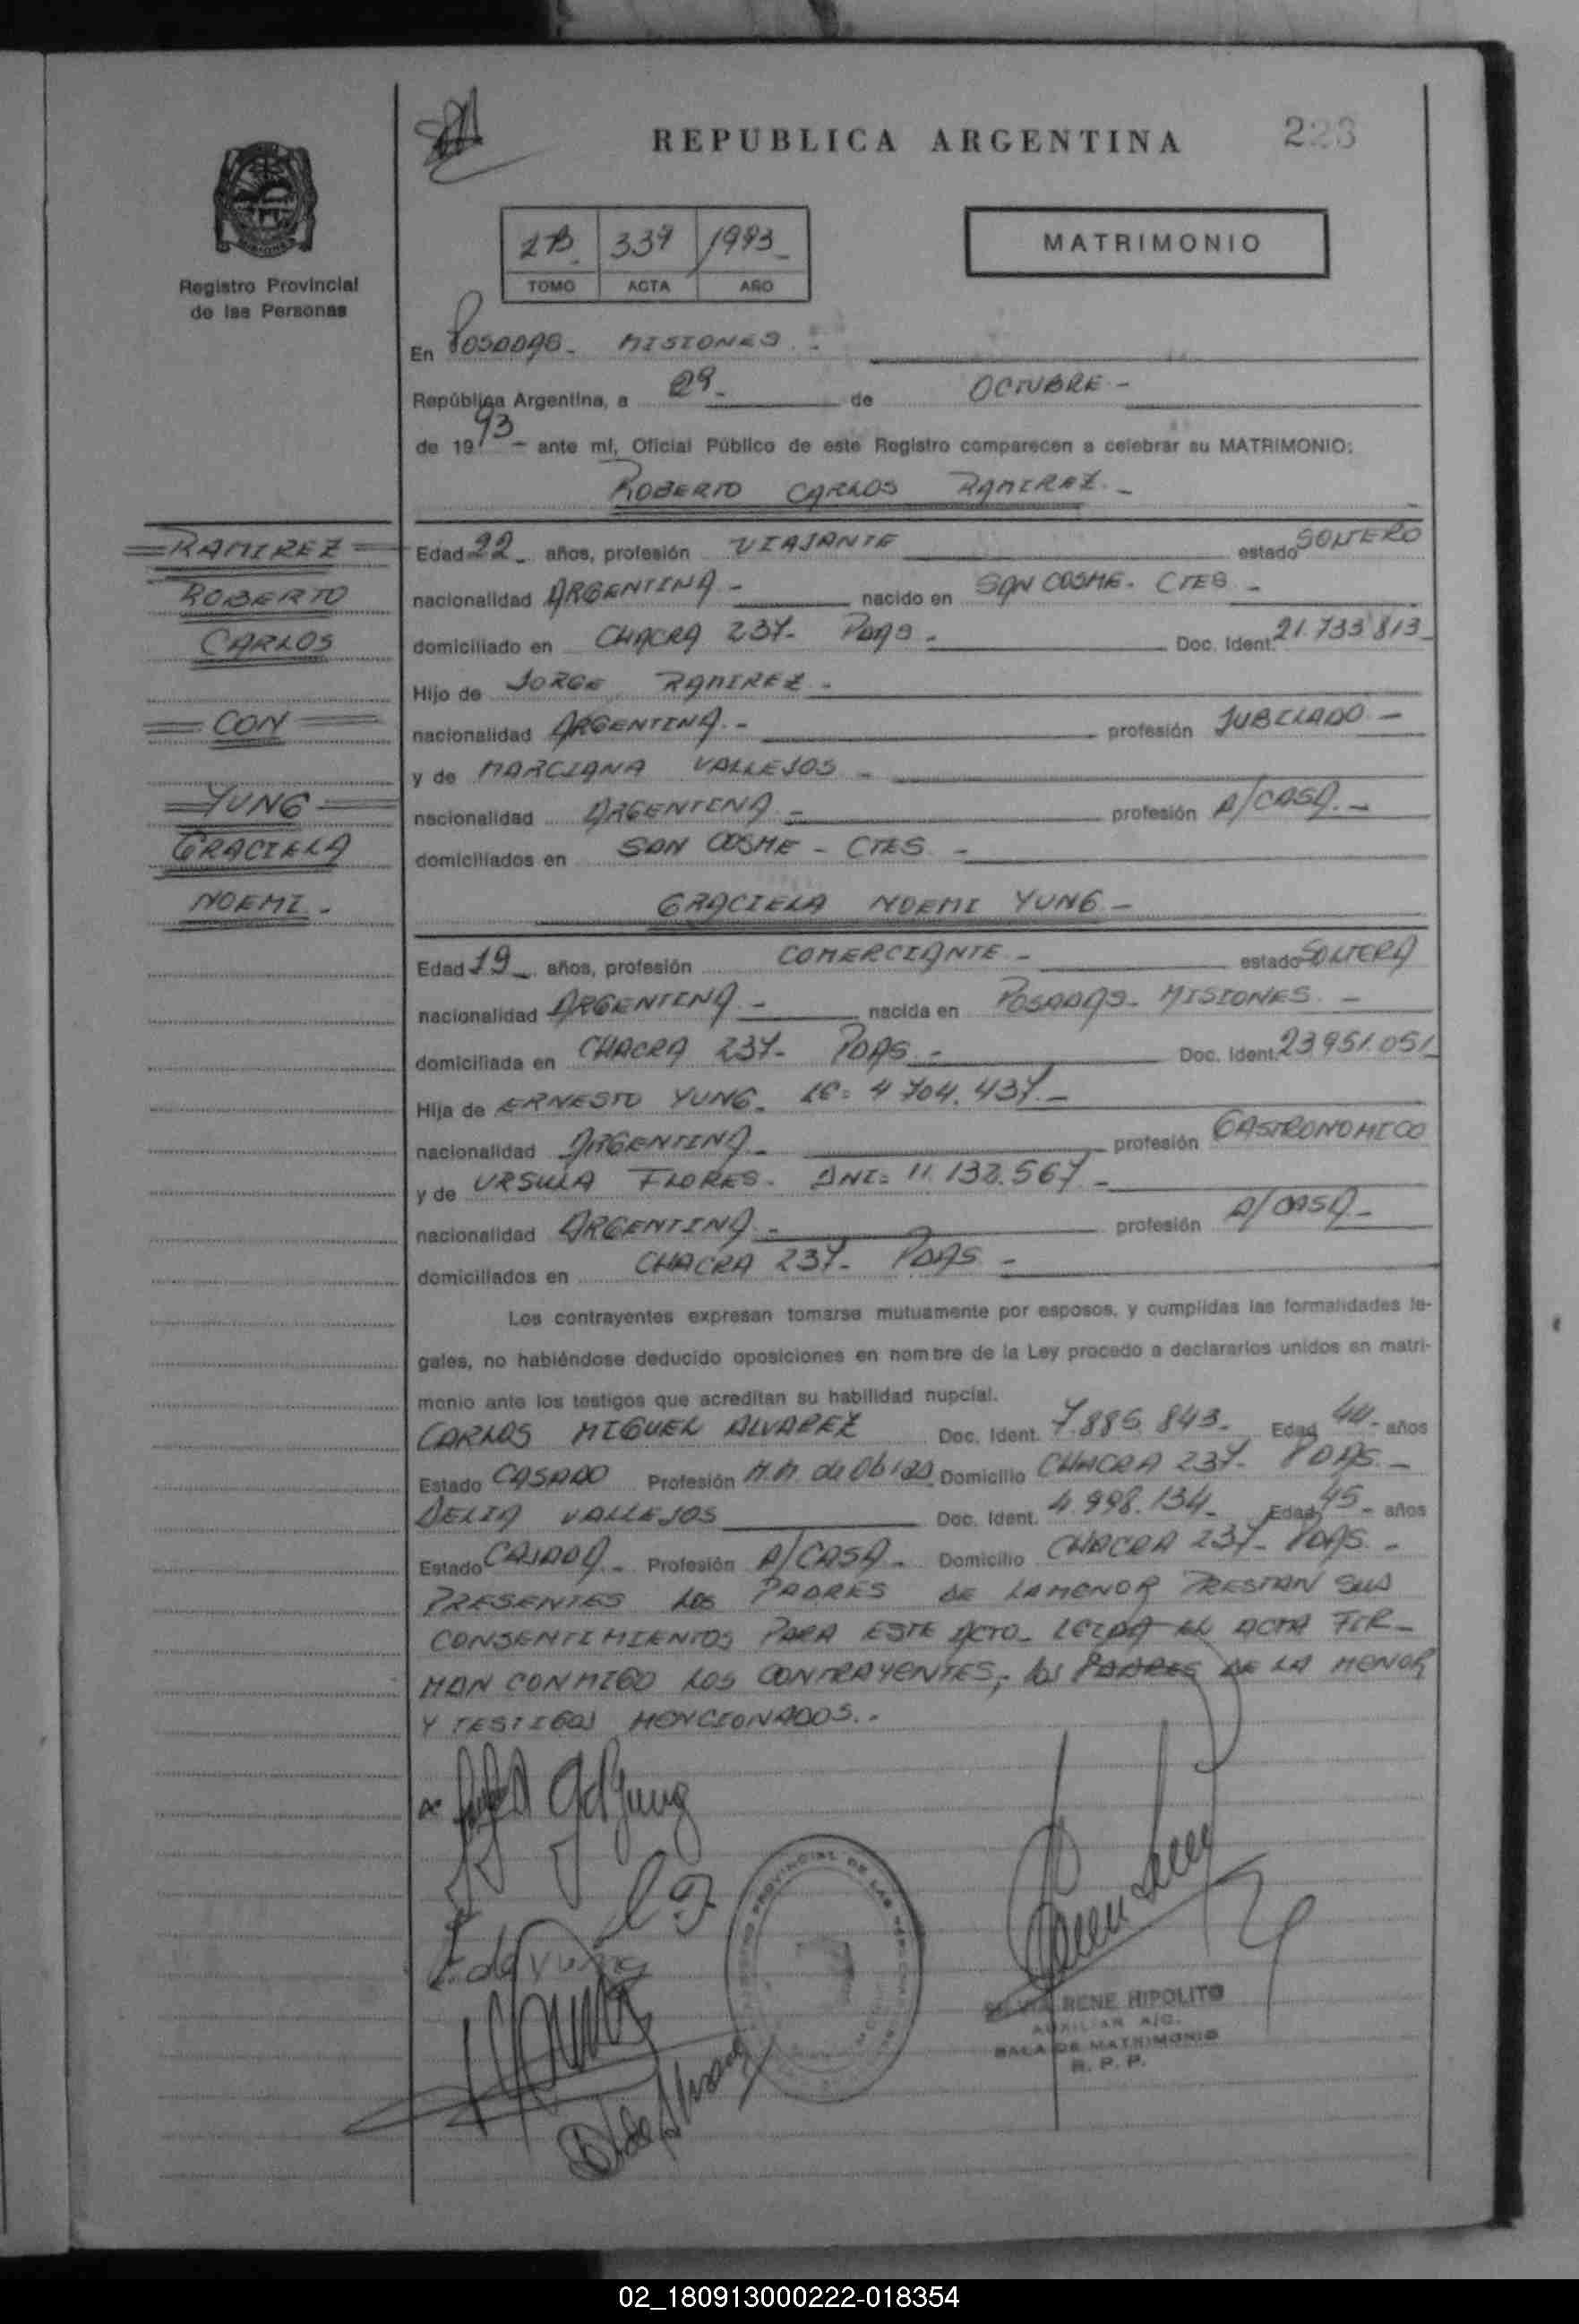 REPUBLICA ARGENTINA
223
Registro Provincial
de las Personas
2B. 339 1993_
TOMO ACTA AÑO
MATRIMONIO
En Posadas - MISIONES -
República Argentina, a 29_ de OCTUBRE -
de 1993 - ante mí, Oficial Público de este Registro comparecen a celebrar su MATRIMONIO:
ROBERTO CARLOS RAMIREZ. -
RAMIREZ
ROBERTO
CARLOS
CON
YUNG
GRACIELA
NOEMI. -
Edad 22_ años, profesión VIAJANTE estado SOLTERO
nacionalidad ARGENTINA - nacido en SAN COSME - CTES -
domiciliado en CHACRA 237- Pdas - Doc. Ident. 21.733 813_
Hijo de JORGE RAMIREZ -
nacionalidad ARGENTINA. - profesión JUBILADO -
y de MARCIANA VALLEJOS -
nacionalidad ARGENTINA - profesión A/CASA. -
domiciliados en SAN COSME - CTES -
GRACIELA NOEMI YUNG -
Edad 19_ años, profesión COMERCIANTE - estado SOLTERA
nacionalidad ARGENTINA - nacida en POSADAS - MISIONES -
domiciliada en CHACRA 237- PDAS - Doc. Ident. 23951.051
Hija de ERNESTO YUNG. LE: 4 704.437. -
nacionalidad ARGENTINA - profesión GASTRONOMICO
y de URSULA FLORES - DNI: 11.132.567 -
nacionalidad ARGENTINA - profesión A/CASA -
domiciliados en CHACRA 237- PDAS -
Los contrayentes expresan tomarse mutuamente por esposos, y cumplidas las formalidades le-
gales, no habiéndose deducido oposiciones en nombre de la Ley procedo a declararlos unidos en matri-
monio ante los testigos que acreditan su habilidad nupcial.
CARLOS MIGUEL ALVAREZ Doc. Ident. 7.885.843- Edad 44- años
Estado CASADO Profesión M.M. de Obras Domicilio CHACRA 237- PDAS -
DELIA VALLEJOS Doc. Ident. 4.998.134_ Edad 45- años
Estado CASADA - Profesión A/CASA - Domicilio CHACRA 237- PDAS -
PRESENTES LOS PADRES DE LA MENOR PRESTAN SUS
CONSENTIMIENTOS PARA ESTE ACTO_ LEIDA EL ACTA FIR-
MAN CONMIGO LOS CONTRAYENTES, los PADRES DE LA MENOR
Y TESTIGOS MENCIONADOS. -
REGISTRO PROVINCIAL DE LAS PERSONAS
RENE HIPOLITO
AUXILIAR A/C.
SALA DE MATRIMONIO
R. P. P.
02_180913000222-018354